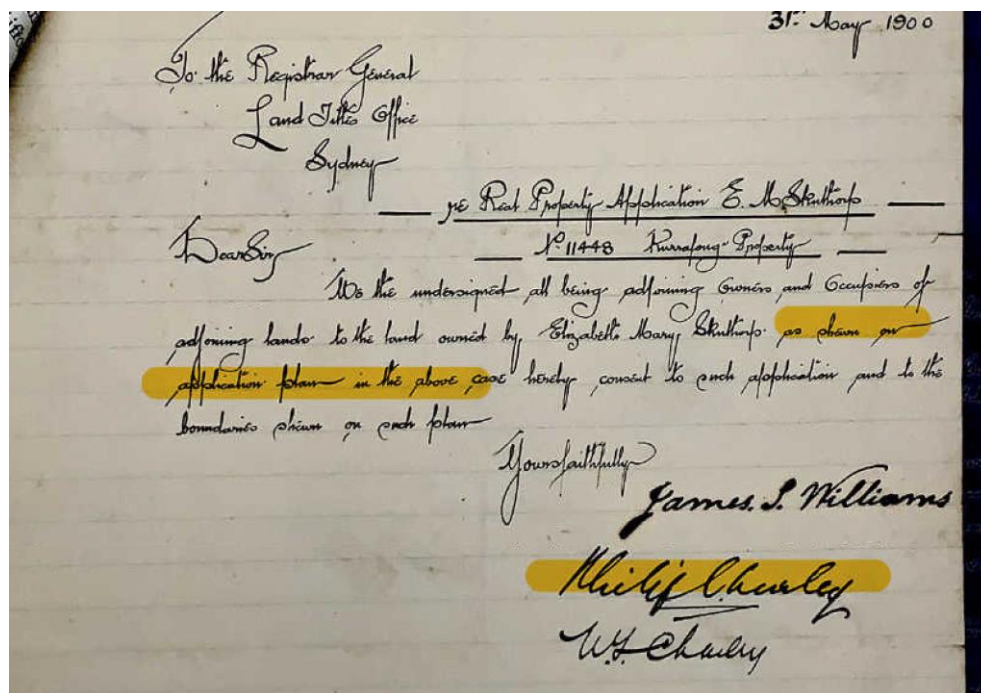 31st May 1900
To the Registrar General
Land Titles Office
Sydney
re Real Property Application E. M. Skuthorp
No 11448 Kurrajong Property
Dear Sir
We the undersigned all being adjoining Owners and Occupiers of
adjoining lands to the land owned by Elizabeth Mary Skuthorp as shewn on
application plan in the above case hereby consent to such application and to the
boundaries shewn on such plan
Yours faithfully
James. S. Williams
Philip Charley
W. Charley